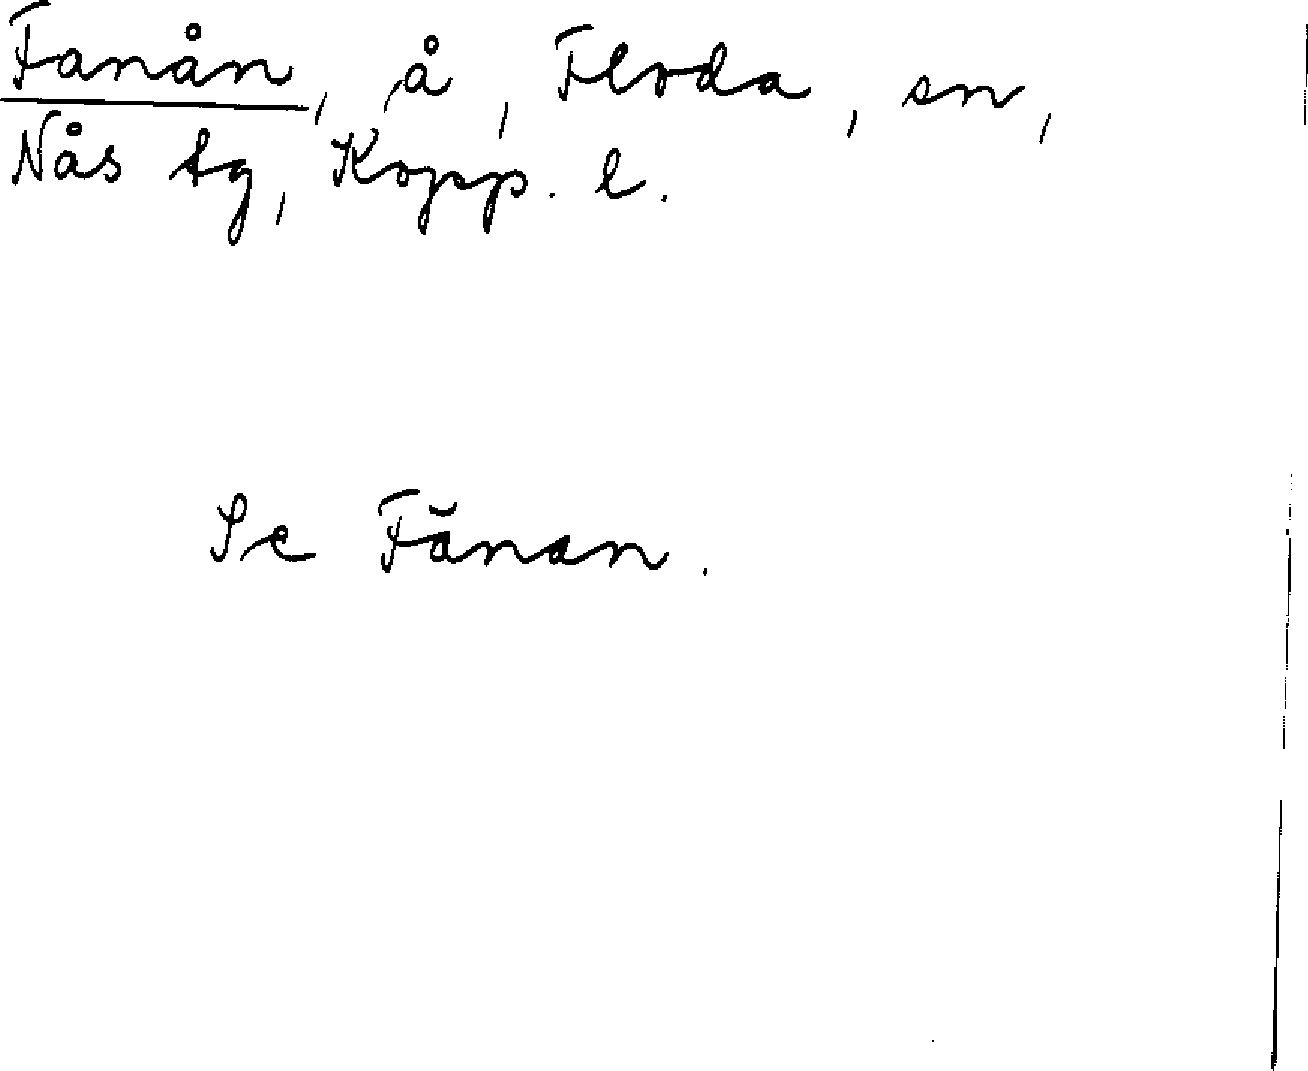 Fanån, å, Floda, sn,
Nås tg, Kopp. l.
Se Fänan.